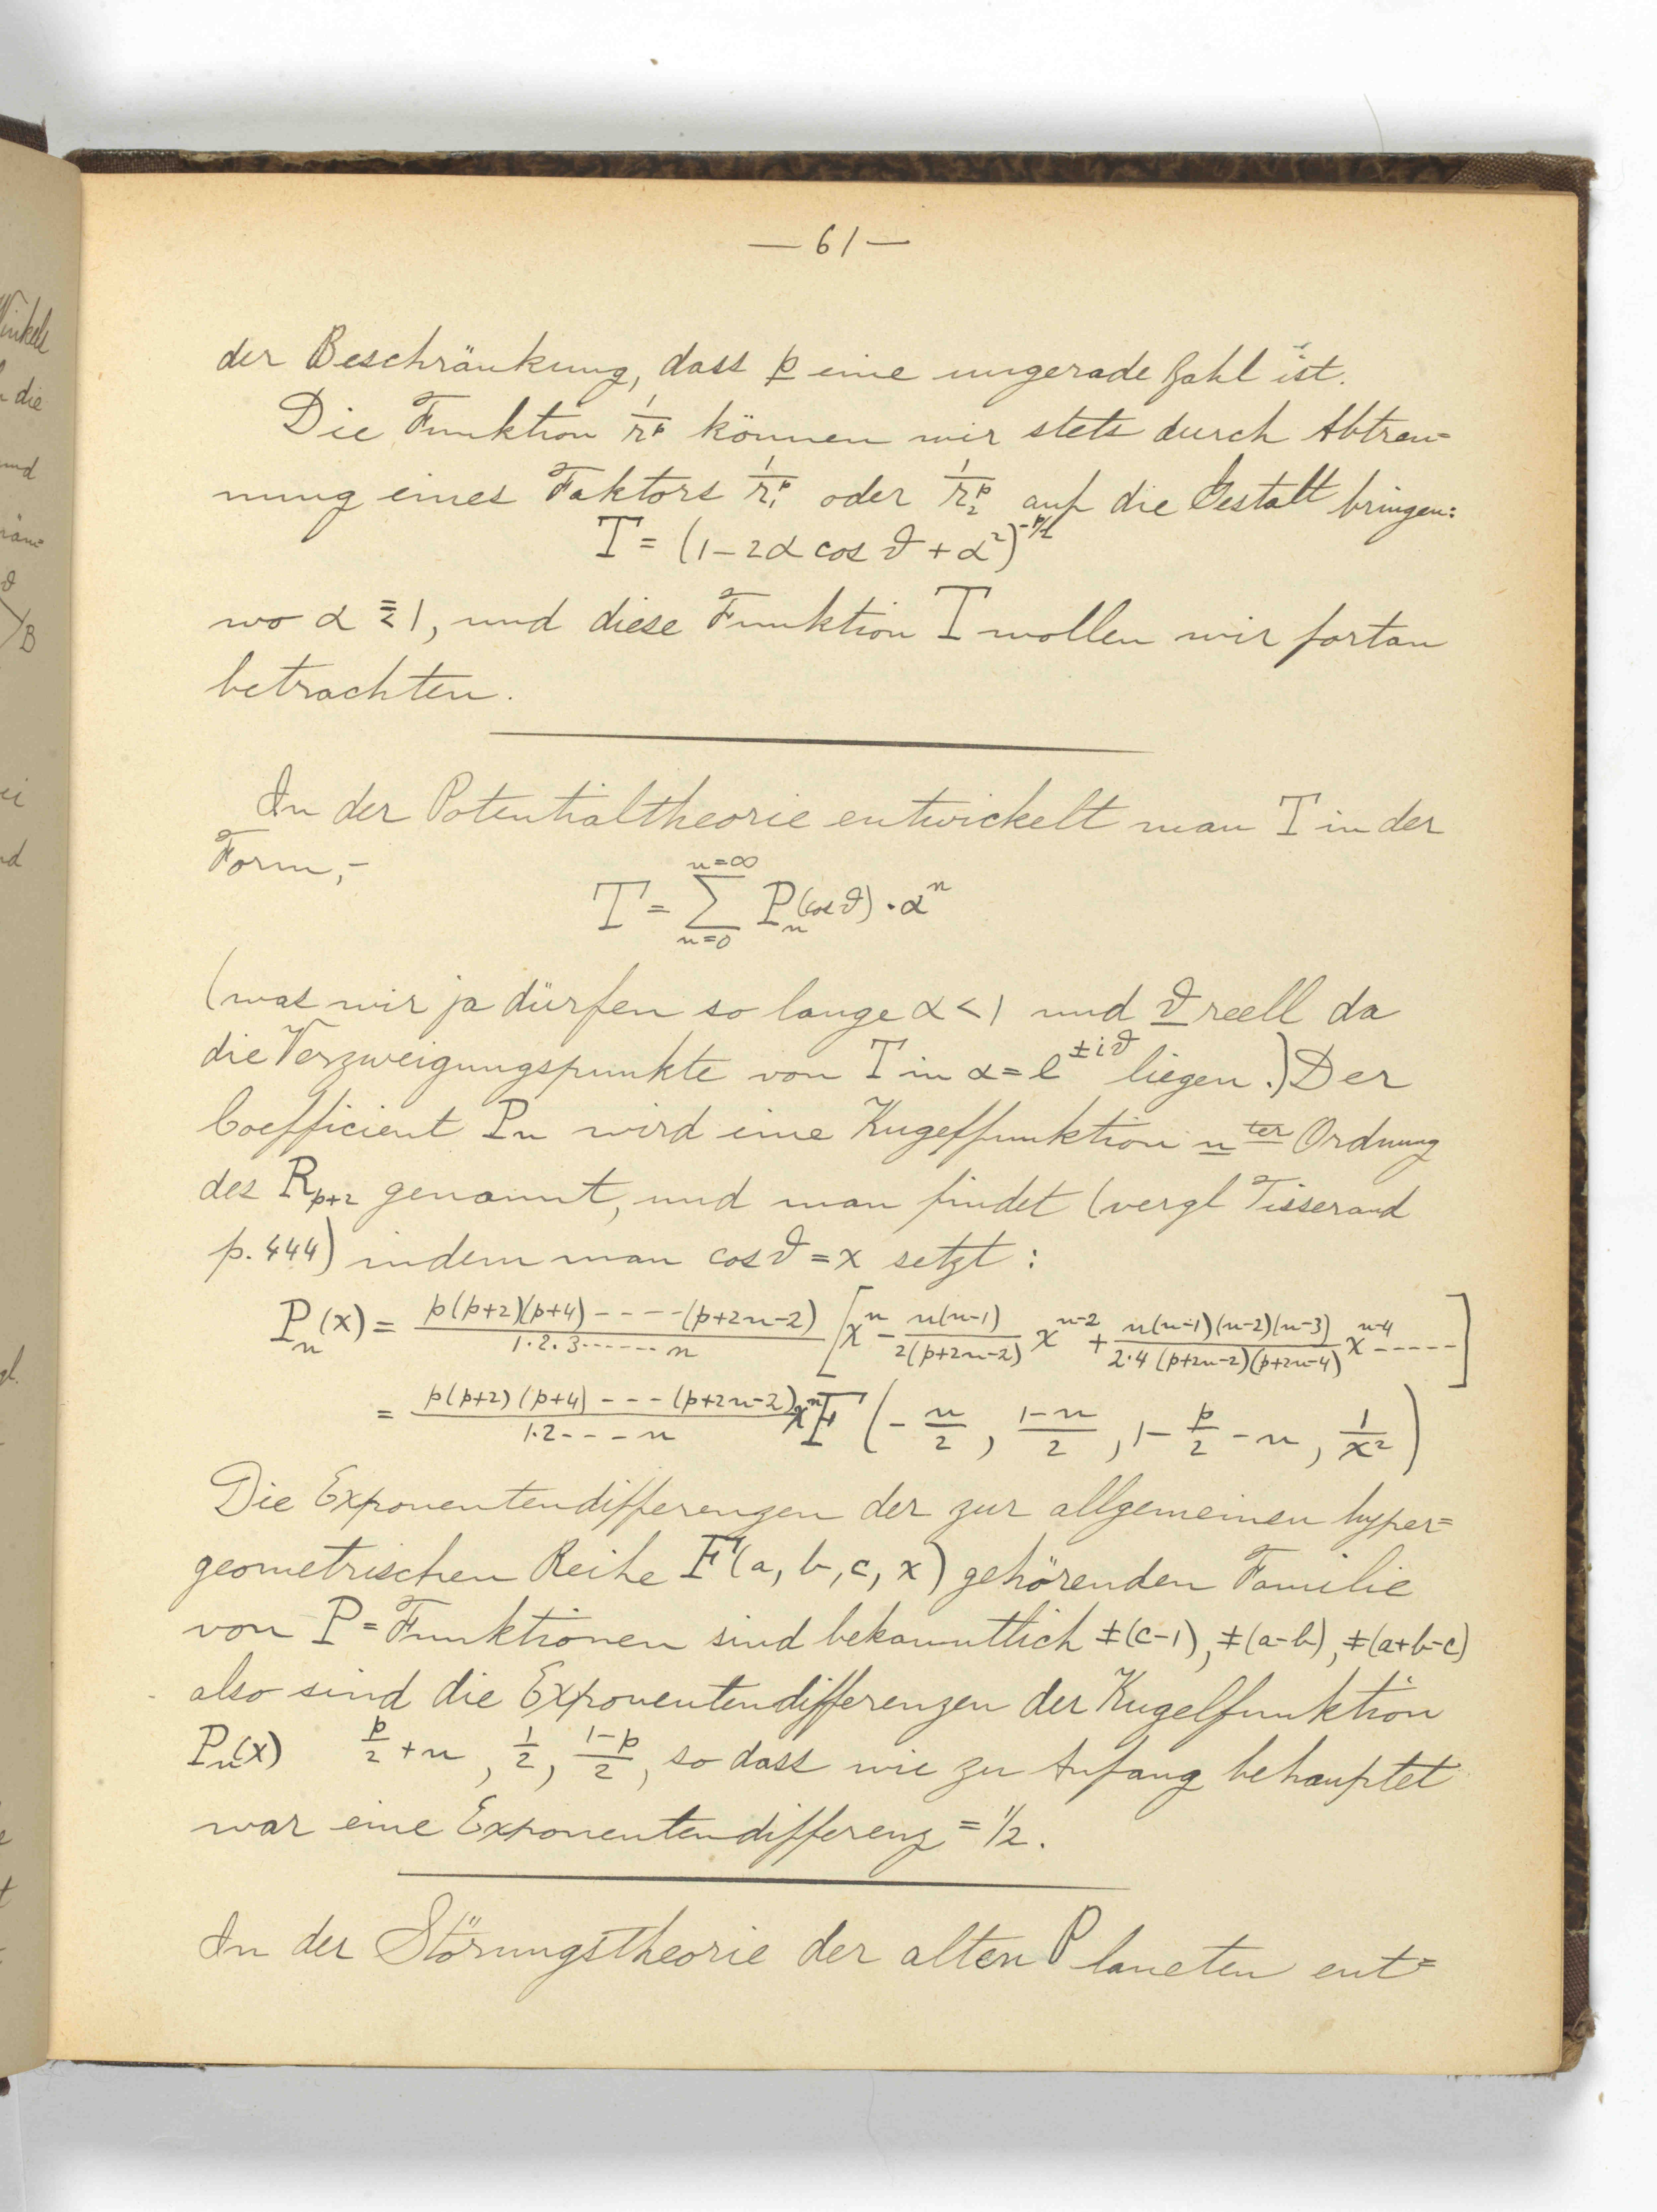 — 61 —
der Beschränkung, dass p eine ungerade Zahl ist.
Die Funktion 1/r^p können wir stets durch Abtren=
nung eines Faktors 1/r_1^p oder 1/r_2^p auf die Gestalt bringen:
T = (1 – 2α cos ϑ + α²)^{-p/2}
wo α ≦ 1, und diese Funktion T wollen wir fortan
betrachten.
In der Potentialtheorie entwickelt man T in der
Form,-
T = Σ_{n=0}^{n=∞} P_n(cos ϑ) · α^n
(was wir ja dürfen so lange α < 1 und ϑ reell da
die Verzweigungspunkte von T in α = e^{±iϑ} liegen.) Der
Coefficient P_n wird eine Kugelfunktion n^{ter} Ordnung
des R_{p+2} genannt, und man findet (vergl Tisserand
p. 444) indem man cos ϑ = x setzt :
P_n(x) = p(p+2)(p+4) - - - - (p+2n-2) / 1·2·3······ n [x^n – n(n-1) / 2(p+2n-2) x^{n-2} + n(n-1)(n-2)(n-3) / 2·4 (p+2n-2)(p+2n-4) x^{n-4} - - - - -]
= p(p+2)(p+4) - - - (p+2n-2) / 1·2 - - - n x^n F (– n/2 , 1-n/2 , 1 – p/2 – n , 1/x²)
Die Exponentendifferenzen der zur allgemeinen hyper=
geometrischen Reihe F(a, b, c, x) gehörenden Familie
von P=Funktionen sind bekanntlich ±(c-1), ±(a-b), ±(a+b-c)
also sind die Exponentendifferenzen der Kugelfunktion
P_n(x) p/2 + n , 1/2 , 1-p/2 , so dass wie zu Anfang behauptet
war eine Exponentendifferenz = 1/2.
In der Störungstheorie der alten Planeten ent=